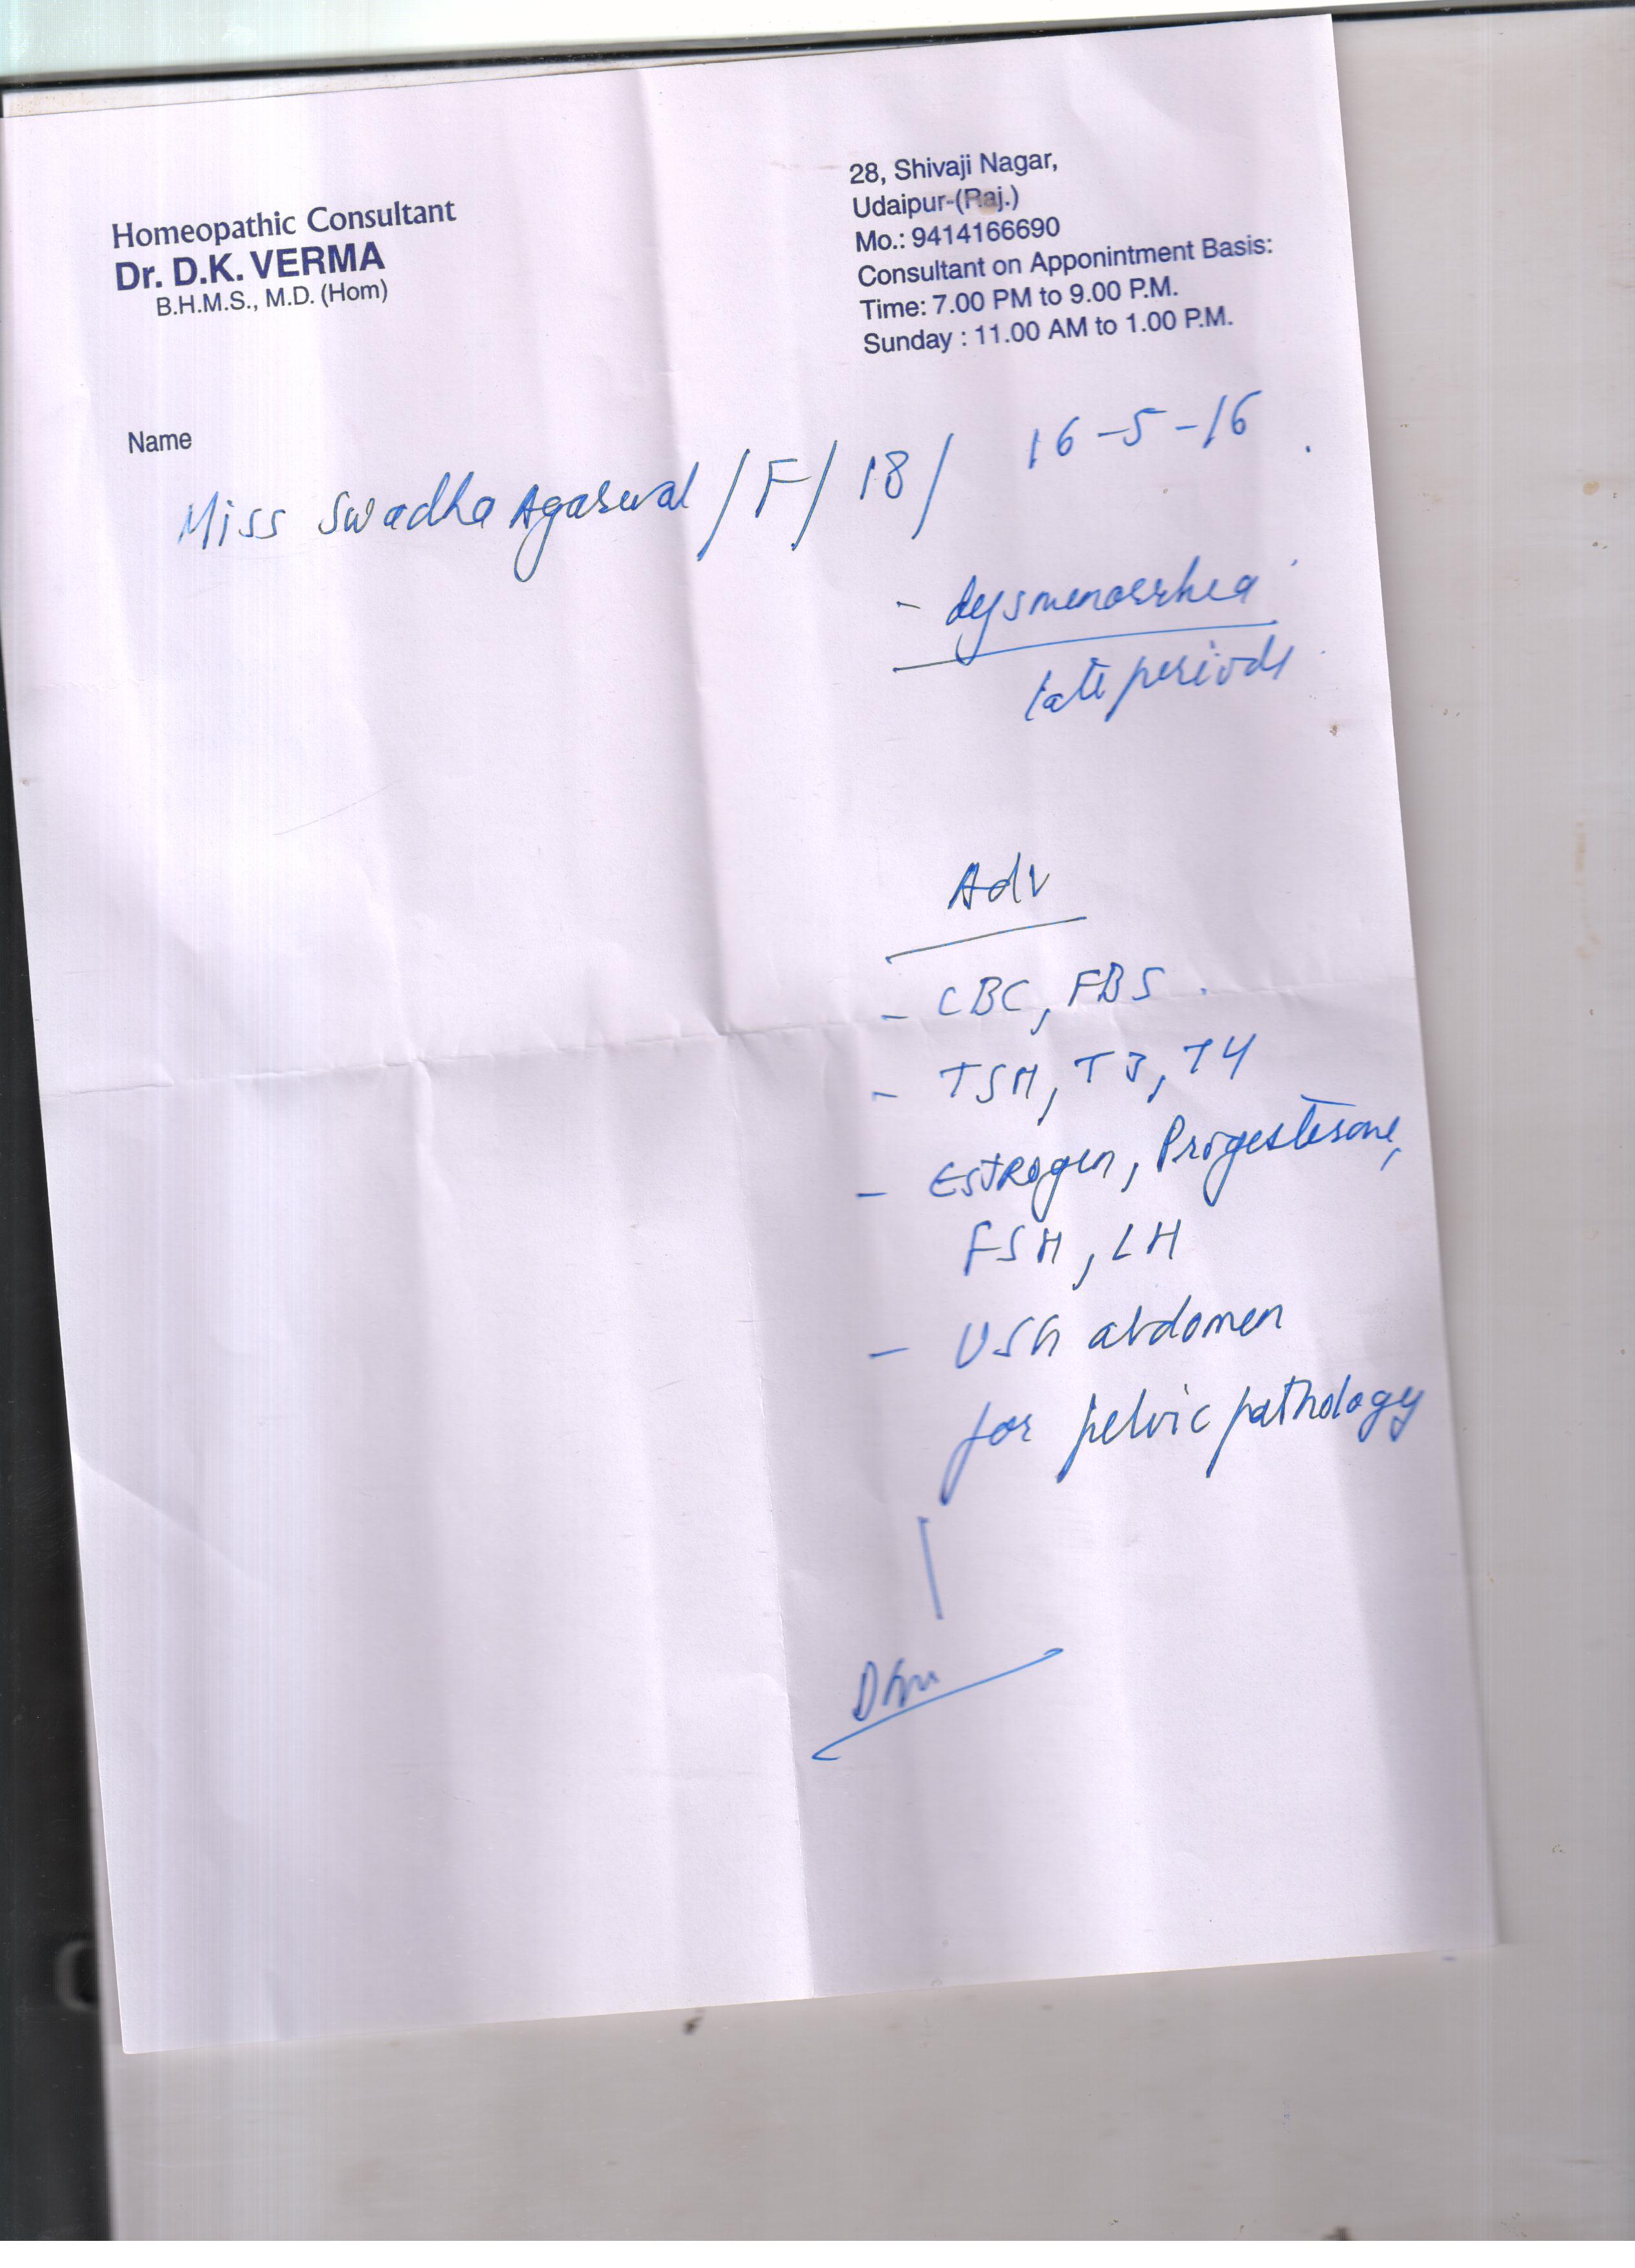 Homeopathic Consultant
Dr. D.K. VERMA
B.H.M.S., M.D. (Hom)
28, Shivaji Nagar,
Udaipur-(Raj.)
Mo.: 9414166690
Consultant on Apponintment Basis:
Time: 7.00 PM to 9.00 P.M.
Sunday : 11.00 AM to 1.00 P.M.
Name
16-5-16
Miss Swadha Agarwal /F/ 18/
- dysmenorrhea
late periods
Adv
- CBC, FBS
- TSH, T3, T4
- Estrogen, Progesterone,
FSH, LH
- USG abdomen
for pelvic pathology